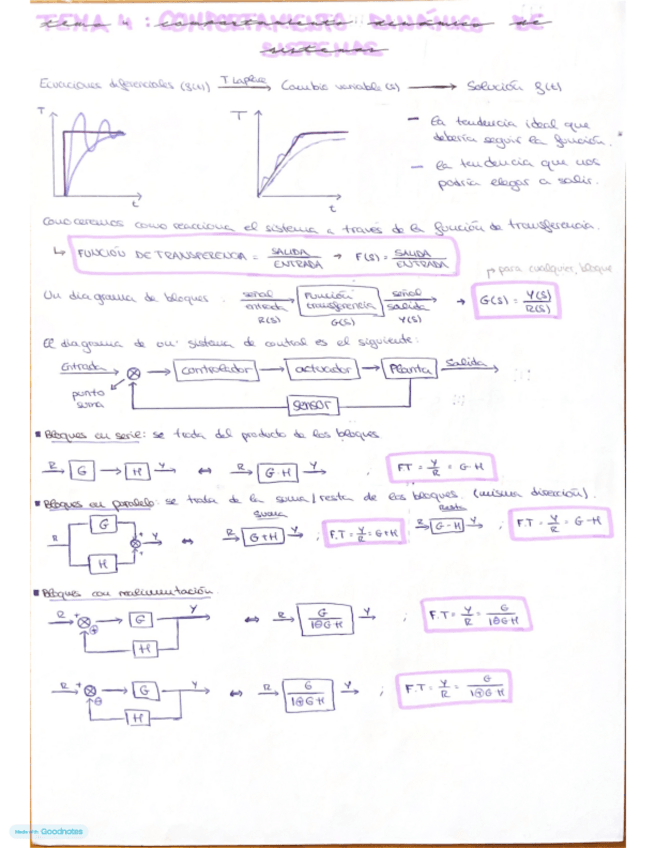 TEMA 4: COMPORTAMIENTO DINÁMICO DE
SISTEMAS
Ecuaciones diferenciales (g(t)) T Laplace Cambio variable (s) Solución g(t)
T
T
t
t
- la tendencia ideal que
debería seguir la función.
- la tendencia que nos
podría llegar a salir.
Conoceremos como reacciona el sistema a través de la función de transferencia.
↳ FUNCIÓN DE TRANSFERENCIA = SALIDA/ENTRADA → F(S) = SALIDA/ENTRADA
→ para cualquier bloque
Un diagrama de bloques. señal entrada R(S) Función transferencia G(S) señal salida Y(S) → G(S) = Y(S)/R(S)
El diagrama de un sistema de control es el siguiente:
Entrada controlador actuador Planta Salida
punto
suma
sensor
Bloques en serie: se trata del producto de los bloques
R G H Y ↔ R G·H Y ; FT = Y/R = G·H
Bloques en paralelo: se trata de la suma/resta de los bloques. (misma dirección).
suma Resta
R G H + + Y ↔ R G+H Y ; F.T = Y/R = G+H R G-H Y ; F.T = Y/R = G-H
Bloques con realimentación.
R + ⊕ G H Y ↔ R G/1⊖GH Y ; F.T = Y/R = G/1⊖GH
R + ⊖ G H Y ↔ R G/1⊕GH Y ; F.T = Y/R = G/1⊕GH
Made with Goodnotes